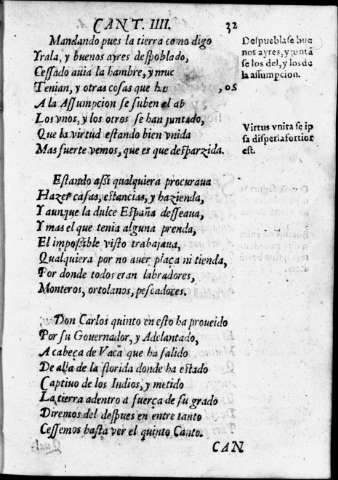 CANT. IIII. 32
Mandando pues la tierra como digo
Yrala, y buenos ayres despoblado,
Cessado auia la hambre, y muc
Tenian, y otras cosas que h os
A la Assumpcion se suben el ab
Los vnos, y los otros se han juntado,
Que la virtud estando bien vnida
Mas fuerte vemos, que es que desparzida.
Despueblase bue
nos ayres, y juntã
se los del, y los de
la assumpcion.
Virtus vnita se ip
sa dispersa fortior
est.
Estando assi qualquiera procuraua
Hazer casas, estancias, y hazienda,
Y aunque la dulce España desseaua,
Y mas el que tenia alguna prenda,
El impossible visto trabajaua,
Qualquiera por no auer plaça ni tienda,
Por donde todos eran labradores,
Monteros, ortolanos, pescadores.
Don Carlos quinto en esto ha proueido
Por su Gouernador, y Adelantado,
A cabeça de Vaca que ha salido
De alla de la florida donde ha estado
Captiuo de los Indios, y metido
La tierra adentro a fuerça de su grado
Diremos del despues en entre tanto
Cessemos hasta ver el quinto Canto.
CAN